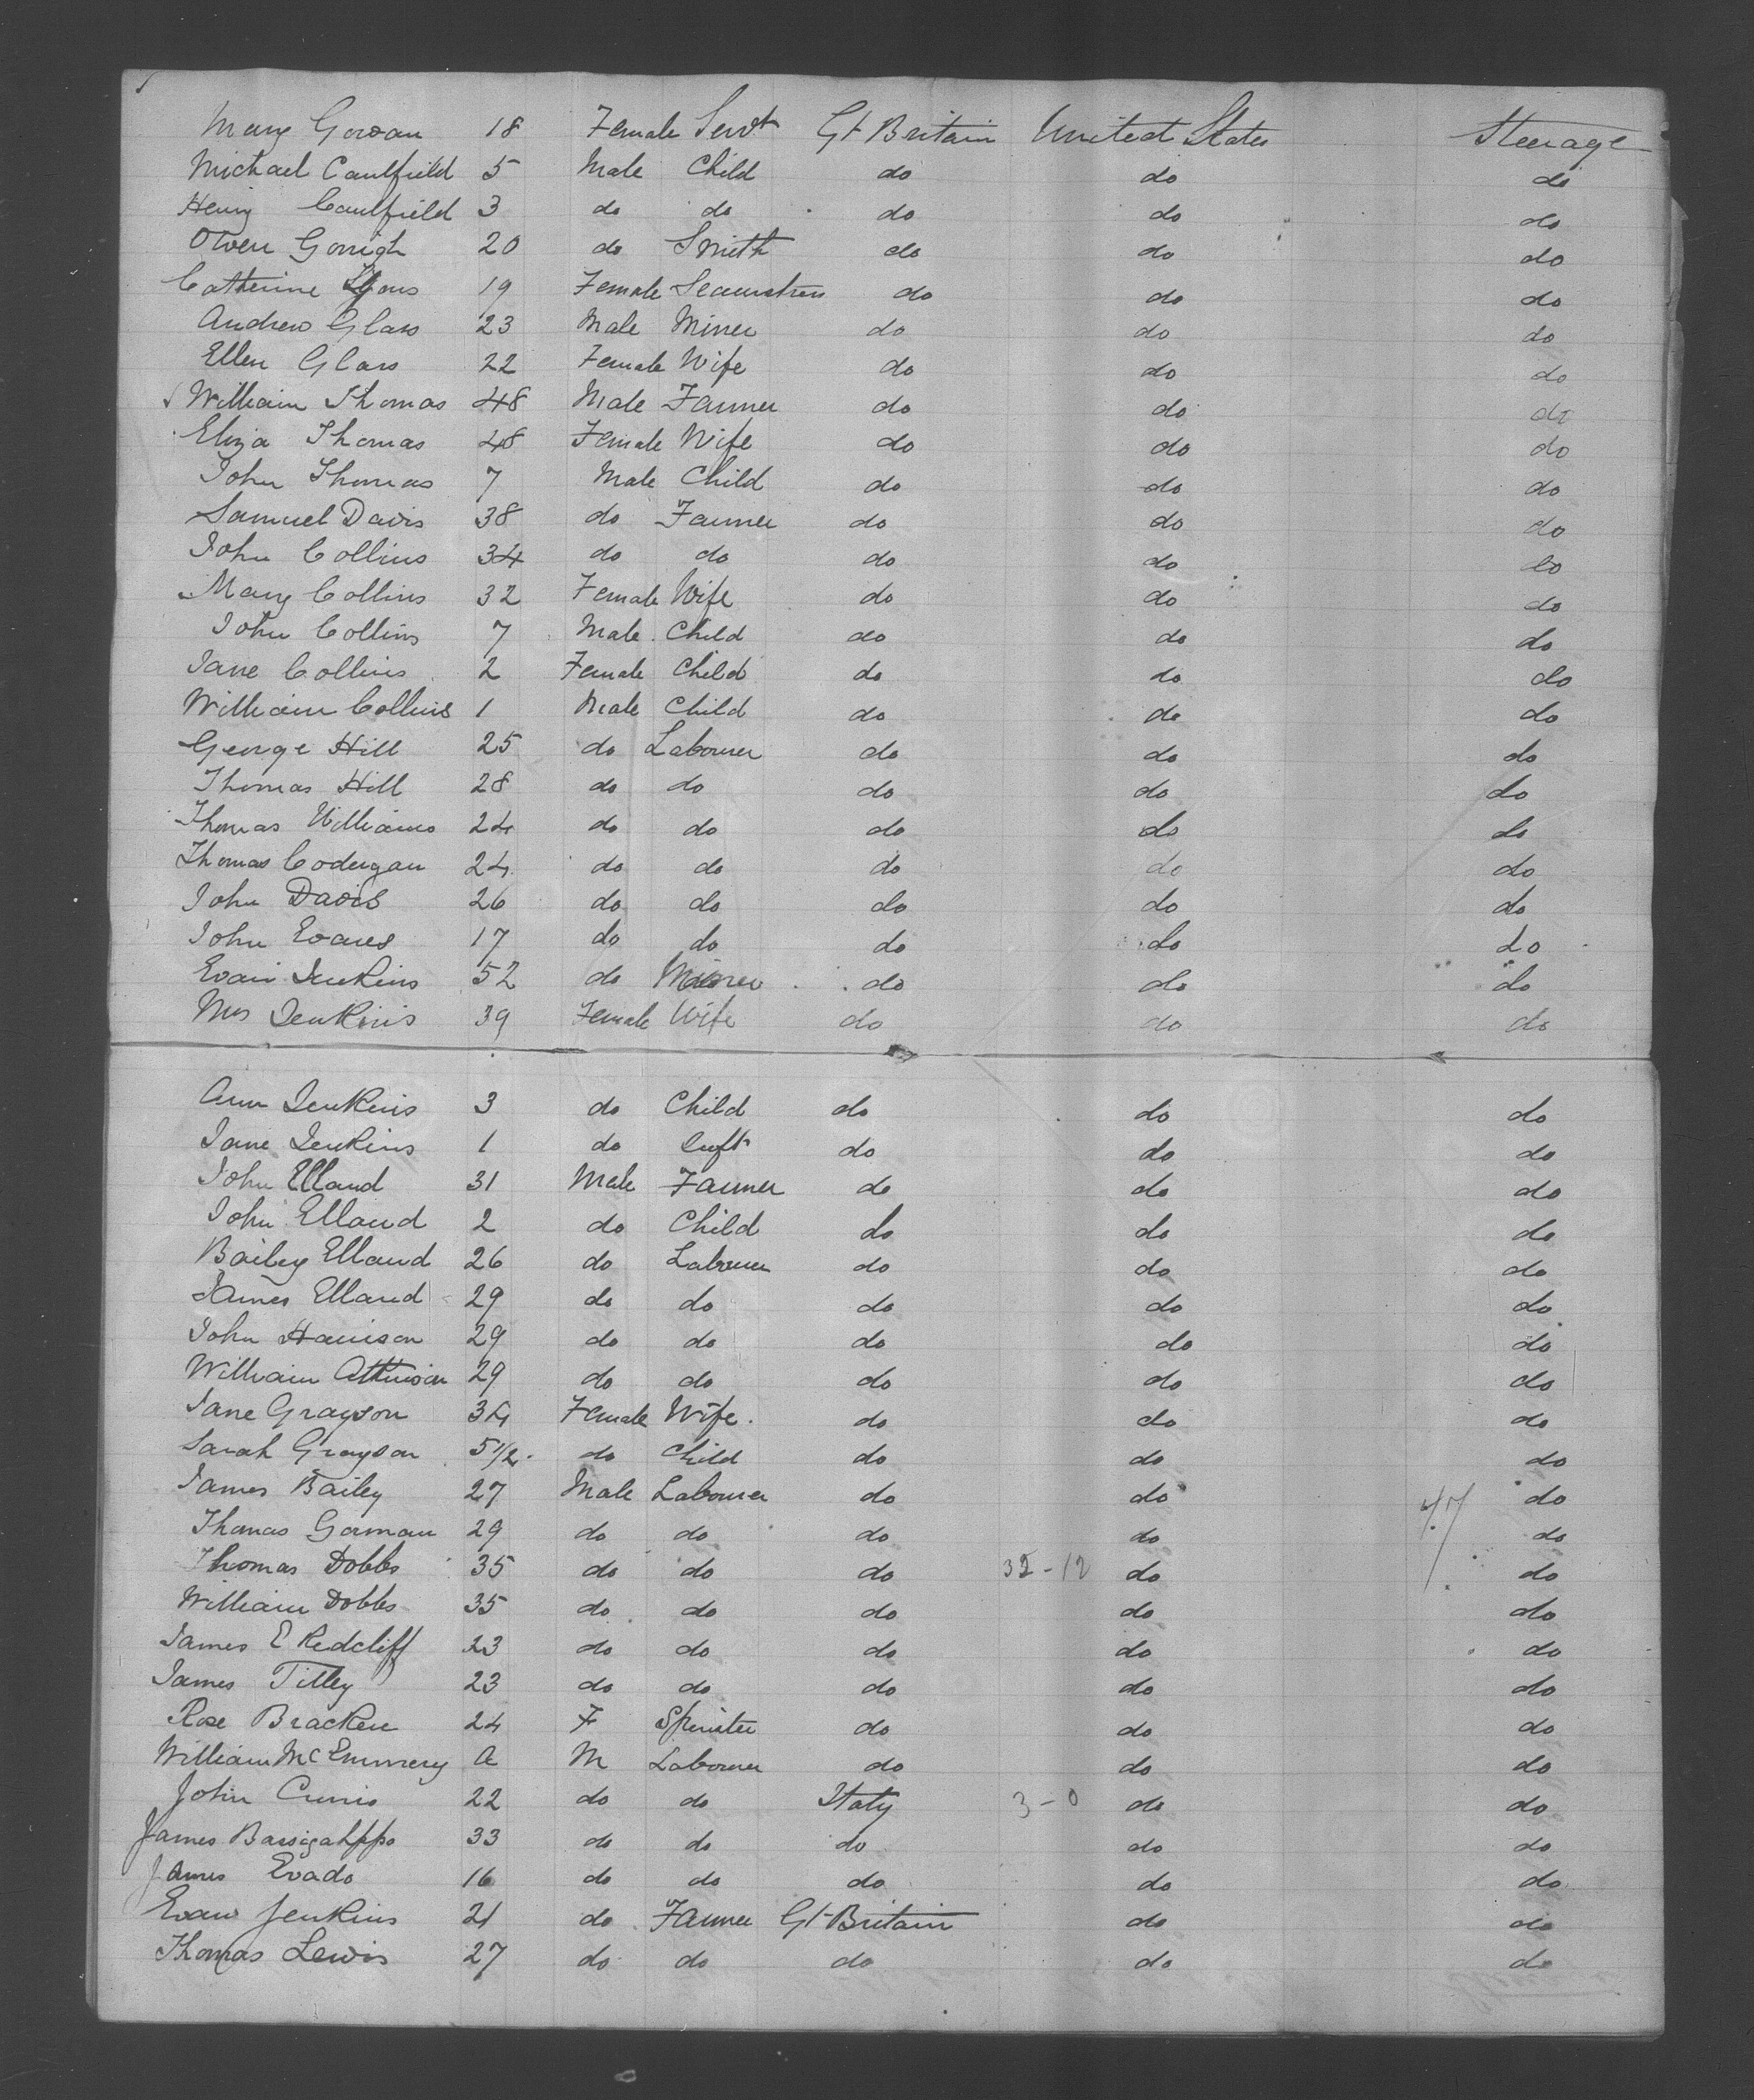 Mary Gowan 18 Female Servt Gt Britain United States Steerage
Michael Caulfield 5 Male Child do do do
Henry Caulfield 3 do do do do do
Owen 20 do Smith do do do
Catherine Lyons 19 Female Seamstress do do do
Andrew Glass 23 Male Miner do do do
Ellen Glass 22 Female Wife do do do
William Thomas 48 Male Farmer do do do
Eliza Thomas 48 Female Wife do do do
John Thomas 7 Male Child do do do
Samuel Davis 38 do Farmer do do do
John Collins 34 do do do do do
Mary Collins 32 Female Wife do do do
John Collins 7 Male Child do do do
Jane Collins 2 Female Child do do do
William Collins 1 Male Child do do do
George Hill 25 do Labourer do do do
Thomas Hill 28 do do do do do
Thomas Williams 24 do do do do do
Thomas 24 do do do do do
John Davis 26 do do do do do
John Evans 17 do do do do do
Evan Jenkins 52 do Miner do do do
Mrs Jenkins 39 Female Wife do do do
Ann Jenkins 3 do Child do do do
Jane Jenkins 1 do Inft do do do
John Elland 31 Male Farmer do do do
John Elland 2 do Child do do do
Bailey Elland 26 do Labourer do do do
James Elland 29 do do do do do
John Harrison 29 do do do do do
William 29 do do do do do
Jane Grayson 34 Female Wife. do do do
Sarah Grayson 5 1/2 do Child do do do
James Bailey 27 Male Labourer do do 47 do
Thomas Gorman 29 do do do do do
Thomas Dobbs 35 do do do 35-12 do do
William Dobbs 35 do do do do do
James E Redcliff 23 do do do do do
James Tilley 23 do do do do do
Rose Bracken 24 F Spinster do do do
William McEmmery a M Labourer do do do
John 22 do do Italy 3-0 do do
James 33 do do do do do
James Evado 16 do do do do do
Evan Jenkins 21 do Farmer Gt Britain do do
Thomas Lewis 27 do do do do do